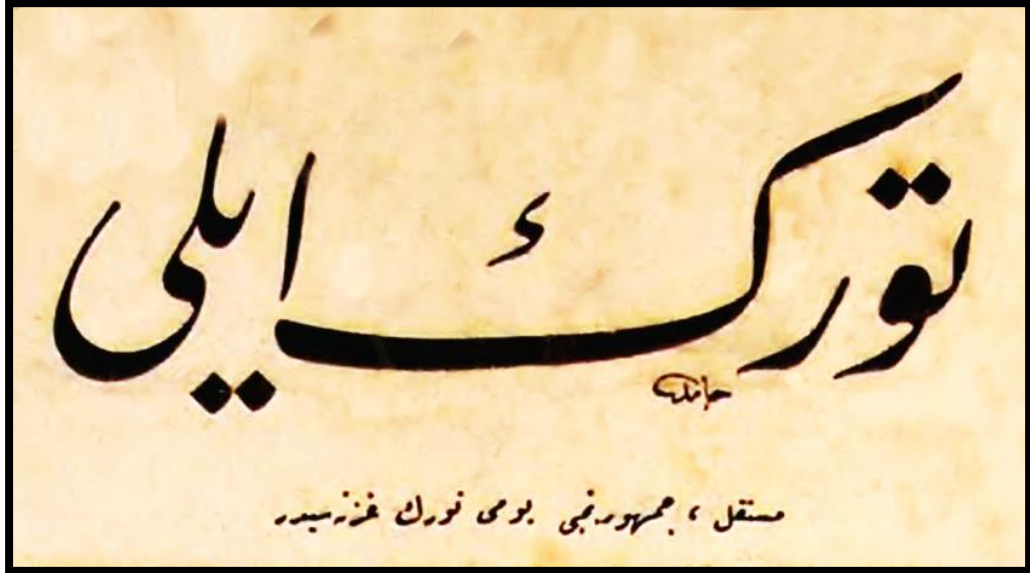 تورك ايلى
حامد
مستقل ، جمهوريتجى يومى تورك غزته‌سيدر